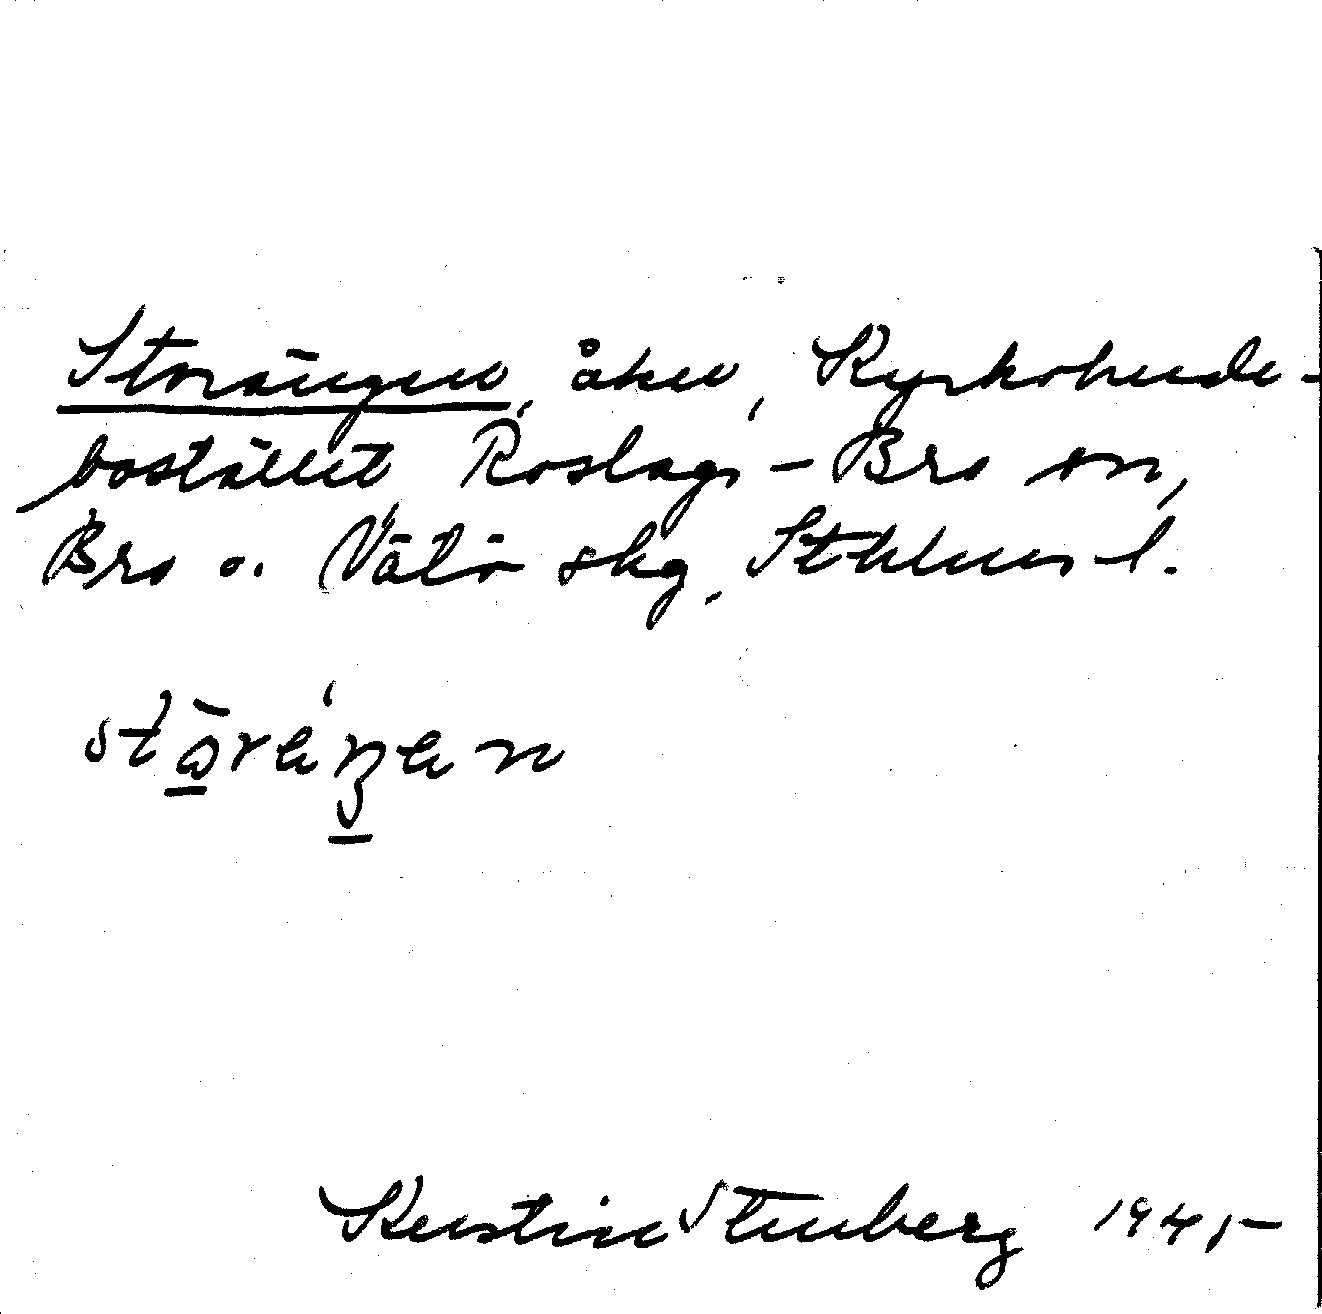 Storängen, åker, Kyrkoherde-
bostället Roslags-Bro sn,
Bro o. Vätö skg, Sthlms l.
Kerstin Stenberg 194